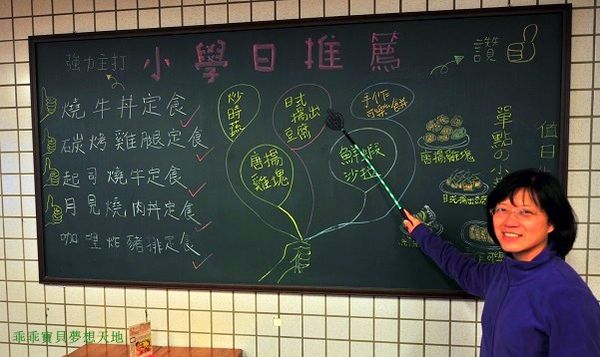 強力主打
小學日推薦
讚
燒牛丼定食
石炭烤雞腿定食
起司燒牛定食
月見燒肉丼定食
咖哩炸豬排定食
炒時蔬
日式
揚出
豆腐
手作
可樂餅
唐揚
雞塊
鮮蝦
沙拉
單點の小
值日
唐揚雞塊
日式揚出豆腐
乖乖寶貝夢想天地